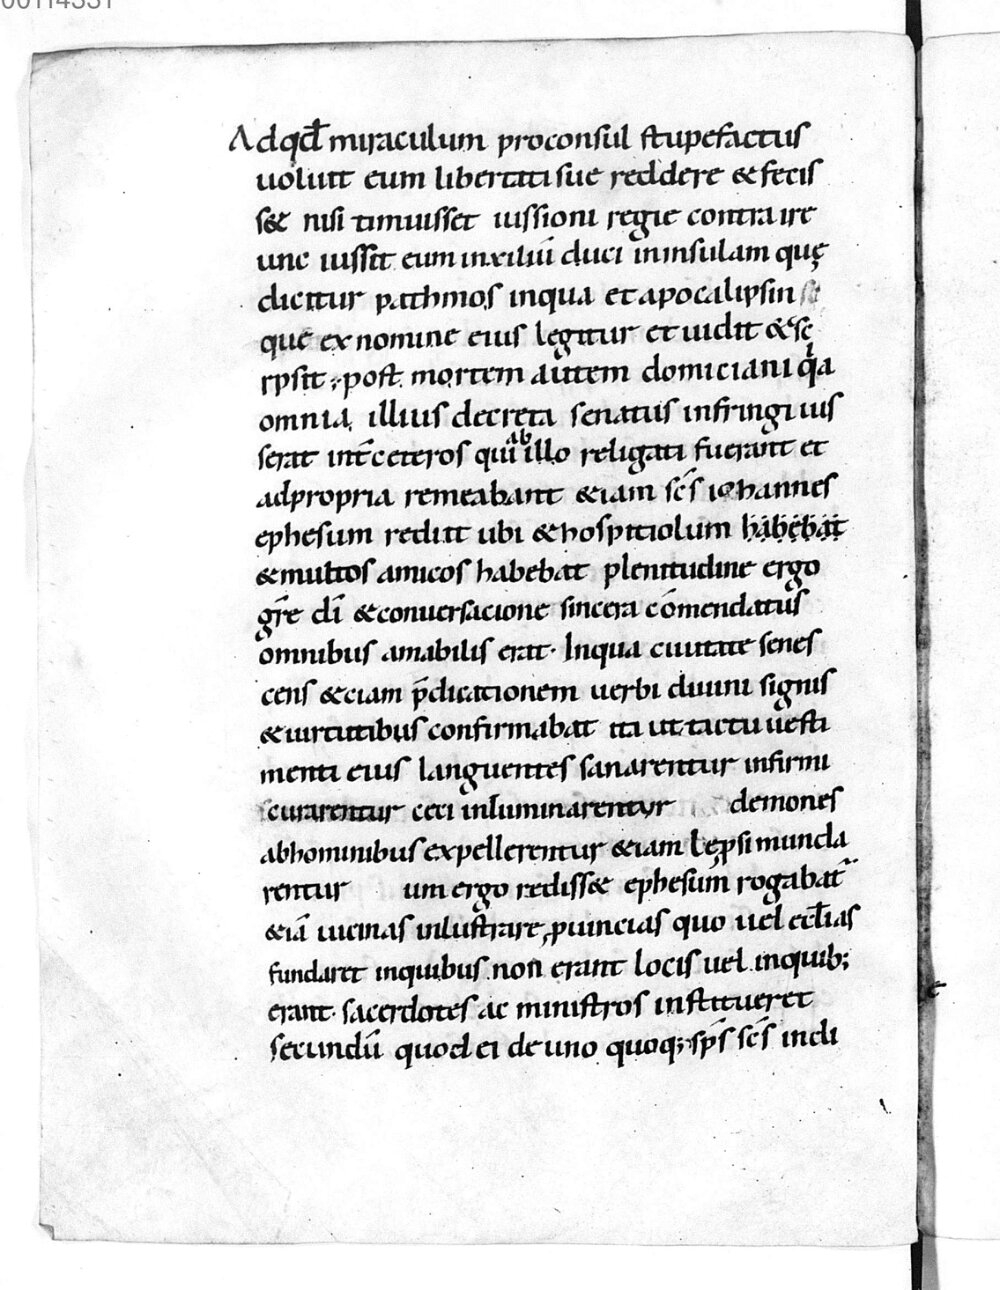 00114331
Adqđ miraculum proconsul stupefactus
uoluit eum libertati sue reddere & fecis
s& nisi timuisset iussioni regie contra ire
unc iussit eum inxiliū duci ininsulam quę
dicitur pathmos inqua et apocalipsin
que ex nomine eius legitur et uidit &sc
rpsit ; post mortem autem domiciani qa
omnia illius decreta senatus infringi ius
serat int̄ ceteros qui ab illo religati fuerant et
adpropria remeabant &iam sc̄s iohannes
ephesum rediit ubi & hospitiolum habebat
& multos amicos habebat plenitudine ergo
gr̄e dī & conuersacione sincera cōmendatus
omnibus amabilis erat · Inqua ciuitate senes
cens &ciam p̄dicationem uerbi diuini signis
& uirtutibus confirmabat ita ut tactu uesti
menti eius languentes sanarentur infirmi
curarentur ceci inluminarentur demones
abhominibus expellerentur &iam lepsi munda
rentur um ergo rediss& ephesum rogabat̄
&iā uicinas inlustrare puincias quo uel eccl̄ias
fundaret inquibus non erant locis uel inquib;
erant · sacerdotes ac ministros institueret
secundū quod ei de uno quoq; sp̄s sc̄s indi